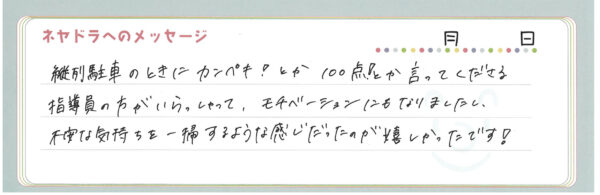 ネヤドラへのメッセージ
月 日
縦列駐車のときにカンペキ!とか100点!とか言ってくださる
指導員の方がいらっしゃって、モチベーションにもなりましたし、
不安な気持ちを一掃するような感じだったのが嬉しかったです!